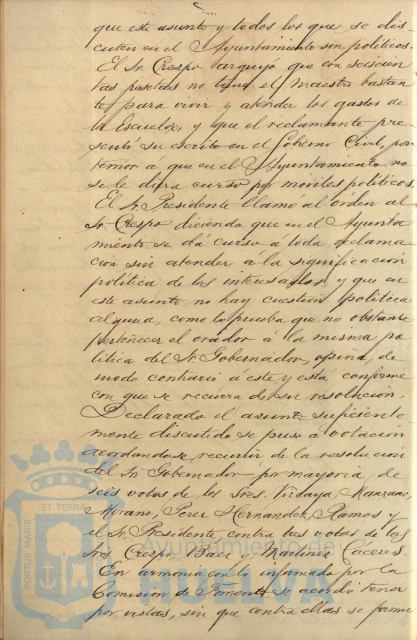 que este asunto y todos los que se dis-
cuten en el Ayuntamiento son políticos.
El Sr. Crespo arguyó que con seiscien
tas pesetas no tiene el maestro bastan
te para vivir y atender los gastos de
la Escuela, y que el reclamante pre
sentó su escrito en el Gobierno Civil, por
temor á que en el Ayuntamiento no
se le diera curso por móviles políticos.
El Sr. Presidente llamó al orden al
Sr. Crespo diciendo que en el Ayunta
miento se dá curso á toda reclama
ción sin atender a la significación
política de los interesados, y que en
este asunto no hay cuestión política
alguna, como lo prueba que no obstante
pertenecer el orador á la misma po
lítica del Sr. Gobernador, opina de
modo contrario á este y está conforme
con que se recurra de su resolución.
Declarado el asunto suficiente
mente discutido se puso á votación
acordandose recurrir de la resolución
del Sr. Gobernador por mayoría de
seis votos de los Sres. Manzano
Morano, Perez Hernandez, Ramos y
el Sr. Presidente contra tres votos de los
Sres. Crespo, Baez y Martinez Caceres.
En armonía con lo informado por la
Comision de Fomento se acordó tener
por vistas, sin que contra ellas se forme
PORTUS MARIS ET TERRAE
Ayuntamiento de
HUELVA